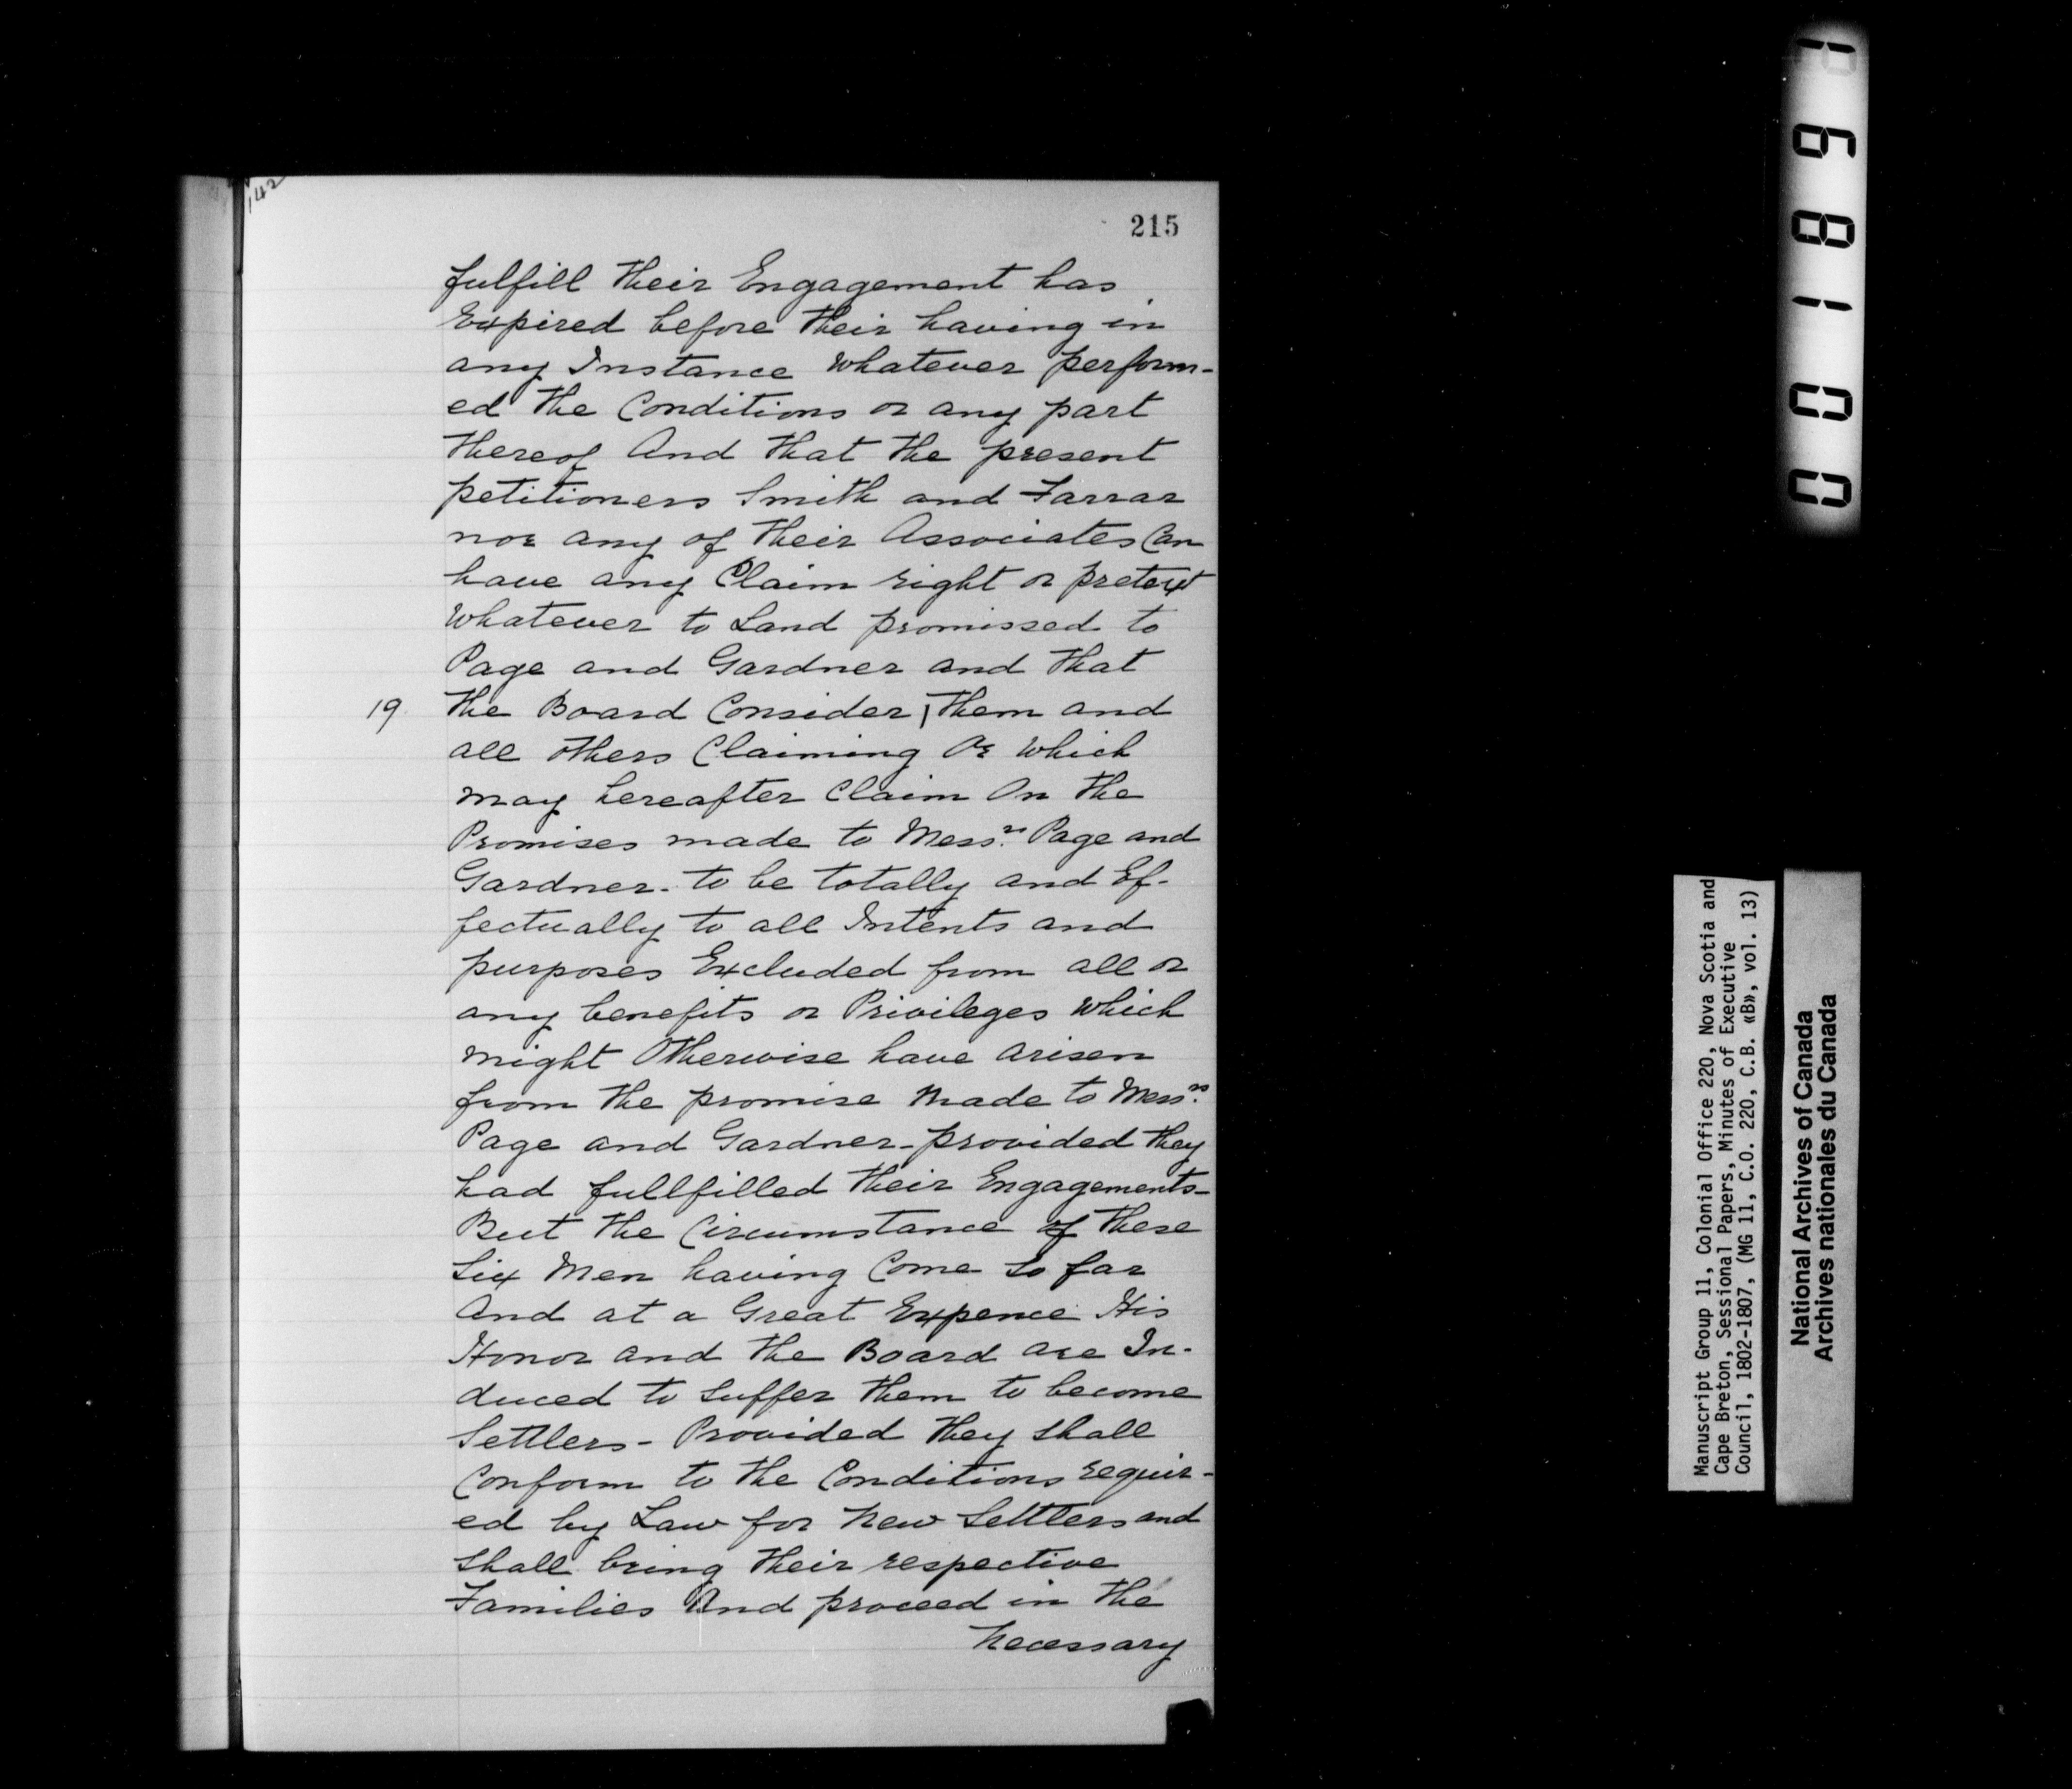 142
215
fulfill their Engagement has
Expired before their having in
any Instance whatever perform-
ed the Conditions or any part
thereof And that the present
petitioners Smith and Farrar
nor any of their Associates Can
have any Claim right or pretext
whatever to Land promissed to
Page and Gardner and that
19 the Board Consider, them and
all others Claiming Or which
may hereafter Claim On the
Promises made to Messrs. Page and
Gardner- to be totally and Ef-
fectually to all Intents and
purposes Excluded from all or
any benefits or Privileges which
might Otherwise have arisen
from the promise Made to Messrs.
Page and Gardner- provided they
had fullfilled their Engagements-
But the Circumstance of these
Six Men having Come So far
And at a Great Expence His
Honor and the Board are In-
duced to Suffer them to become
Settlers- Provided they shall
Conform to the Conditions requir-
ed by Law for New Settlers and
Shall bring their respective
Families And proceed in the
Necessary
001896
Manuscript Group 11, Colonial Office 220, Nova Scotia and
Cape Breton, Sessional Papers, Minutes of Executive
Council, 1802-1807, (MG 11, C.O. 220, C.B. «B», vol. 13)
National Archives of Canada
Archives nationales du Canada